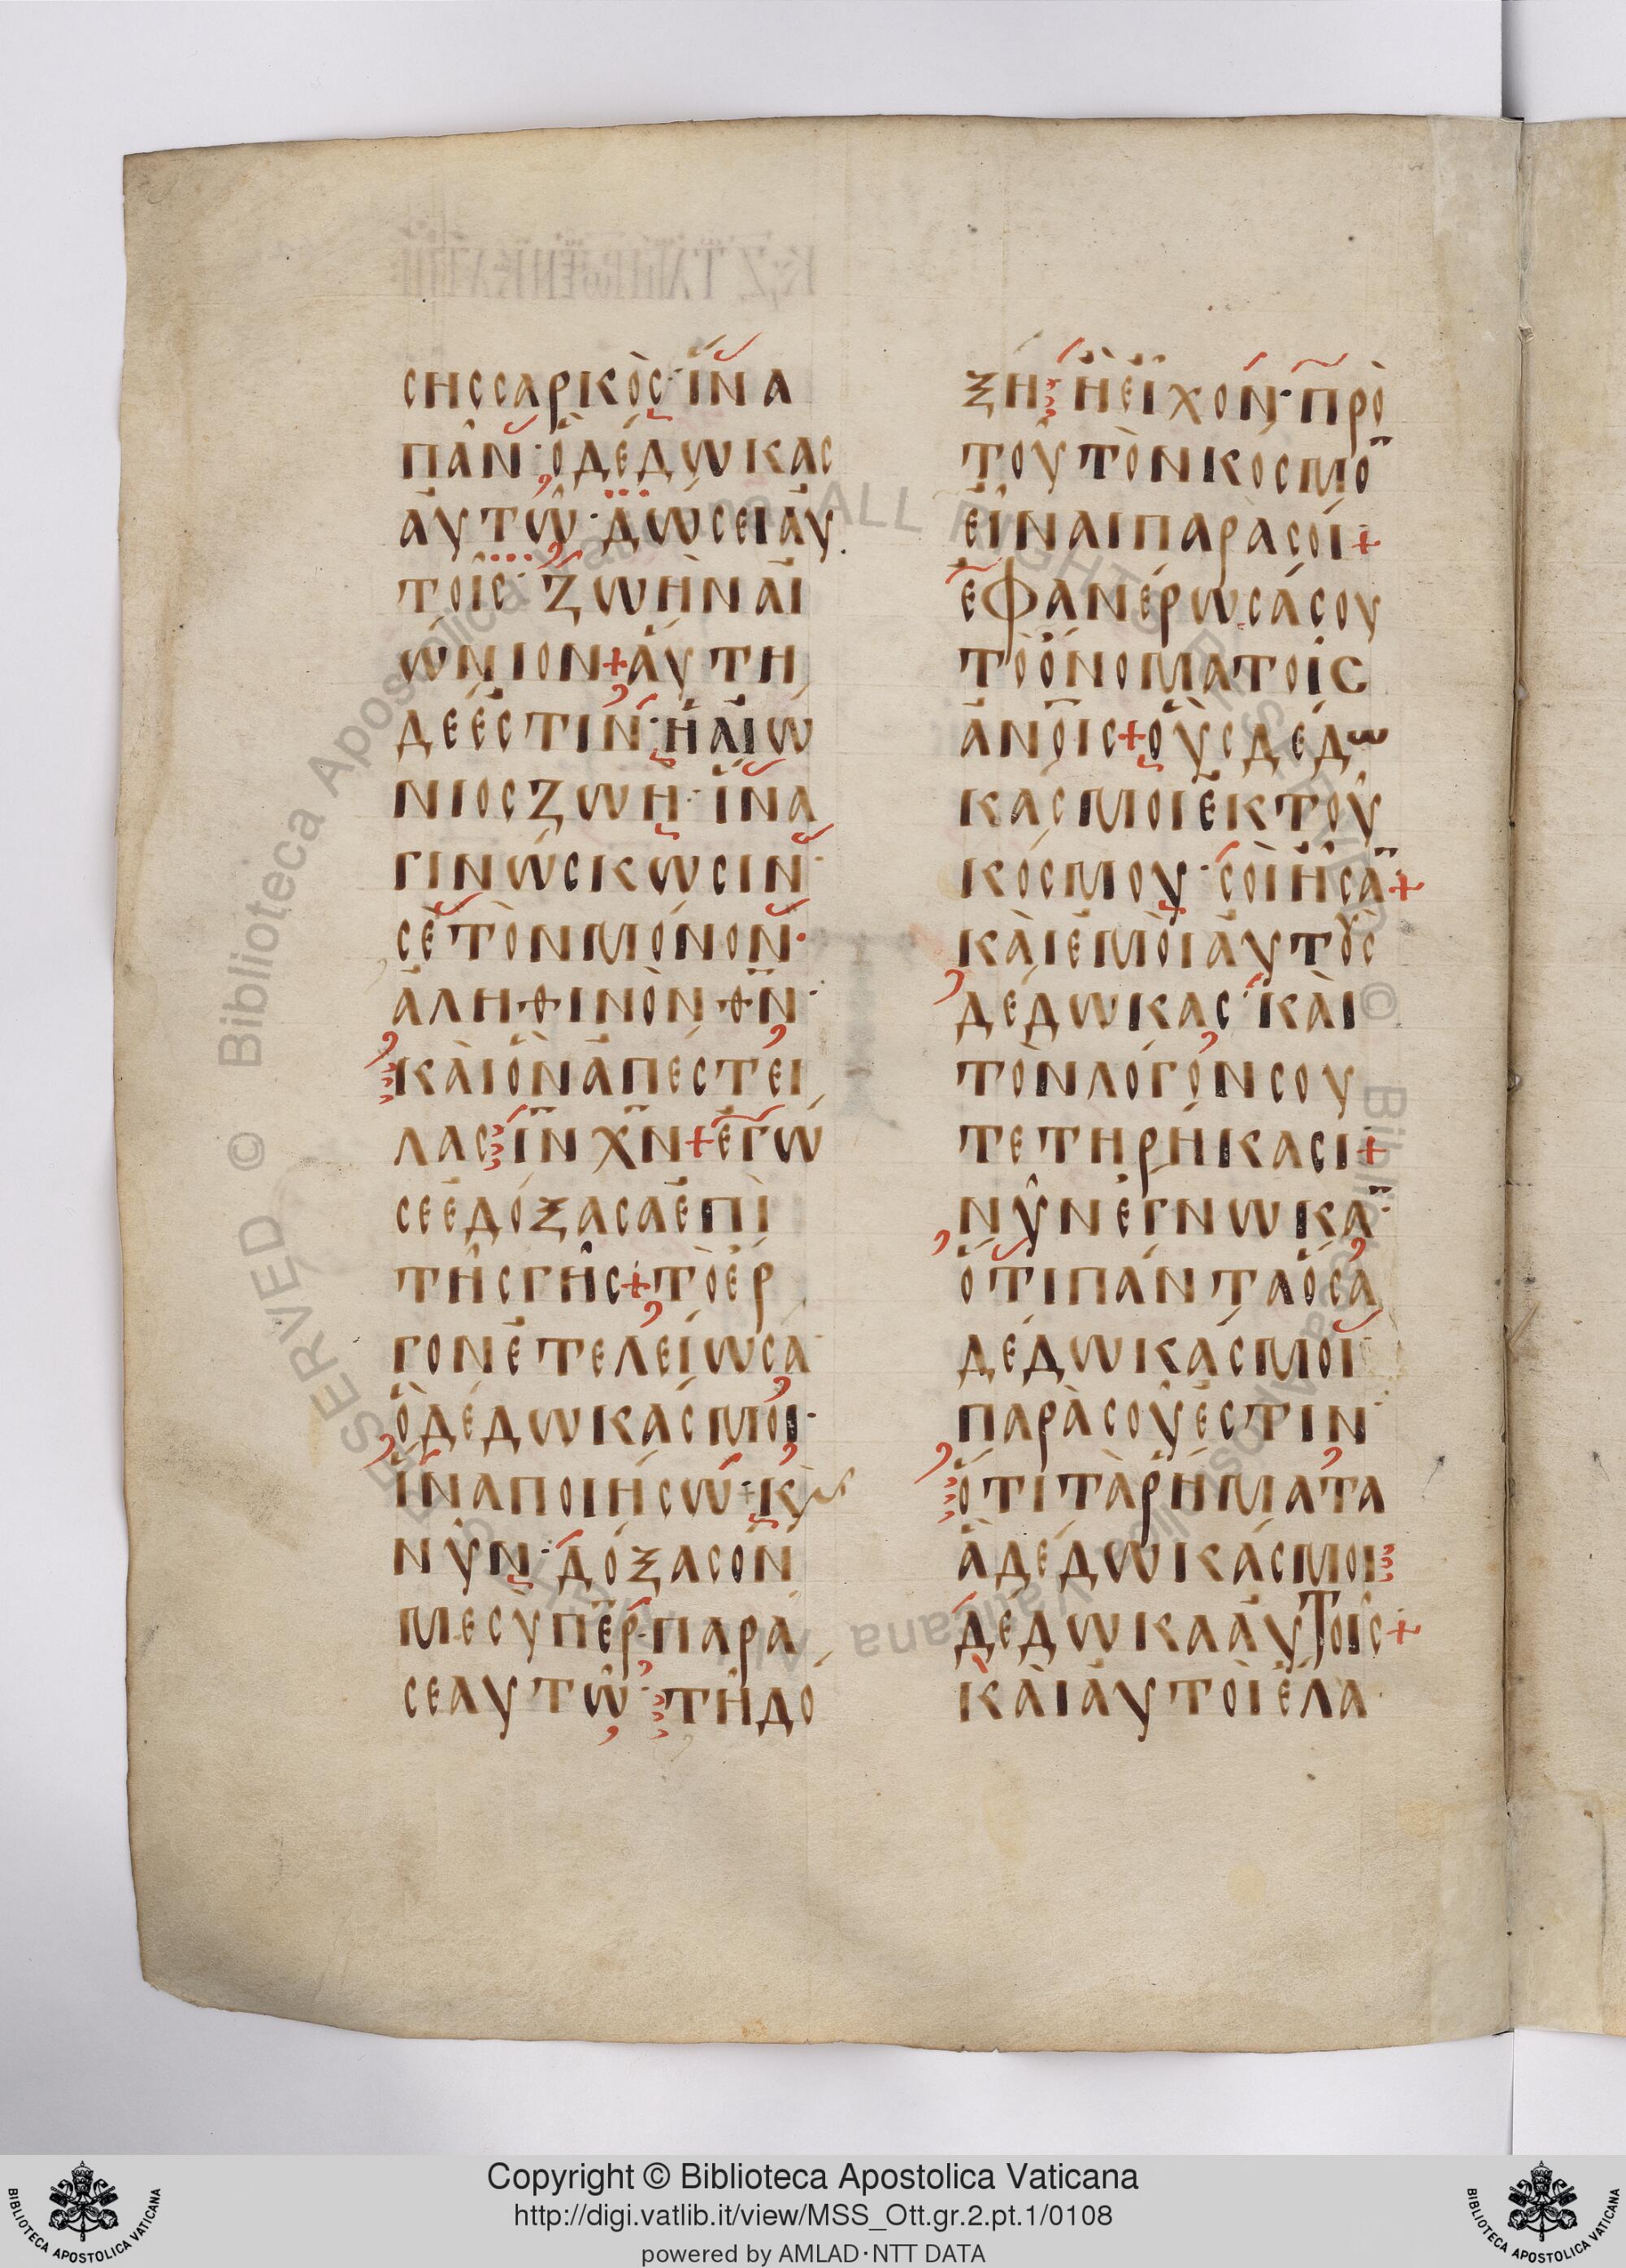 σησσαρκὸς· ἵνα
πᾶν· ὃ δέδωκασ
ἀυτῶ· δώσει ἀυ
τοῖς· ζωὴν ἀι
ώνιον + ἄυτη
δέ ἐστιν· ἡ ἀιώ
νιος ζωή· ἵνα
γινώσκωσιν·
σὲ τὸν μόνον·
ἀληθινὸν θ̅ν̅·
καὶ ὃν ἀπέστει
λας ι̅ν̅ χ̅ν̅ + ἐγώ
σε ἐδόξασα ἐπὶ
τῆς γῆς + τὸ ἔρ
γον ἐτελείωσα·
ὃ δέδωκάς μοι·
ἵνα ποιήσω· κ̀
νῦν· δόξασόν
με σὺ π̅ε̅ρ̅· παρὰ
σεαυτῶ· τῆ δό
ξη ἧ εἶχον· πρὸ
τοῦ τὸν κόσμο̅
εἶναι παρὰ σοί +
ἐφανέρωσά σου
τὸ ὄνομα τοῖς
α̅ν̅ο̅ι̅ς̅ + οὓς δέδω
κάς μοι ἐκ τοῦ
κόσμου· σοὶ ἦσα̅ +
καὶ ἐμοὶ ἀυτοὺς
δέδωκας· καὶ
τὸν λόγον σου
τετηρήκασι +
νῦν ἔγνωκα̅·
ὅτι πάντα ὅσα
δέδωκάς μοι
παρὰ σοῦ ἐστιν·
ὅτι τὰ ῥήματα
ἃ δέδωκάς μοι
δέδωκα ἀυτοῖς +
καὶ ἀυτοὶ ἔλα
Copyright © Biblioteca Apostolica Vaticana
http://digi.vatlib.it/view/MSS_Ott.gr.2.pt.1/0108
powered by AMLAD·NTT DATA
BIBLIOTECA APOSTOLICA VATICANA
BIBLIOTECA APOSTOLICA VATICANA